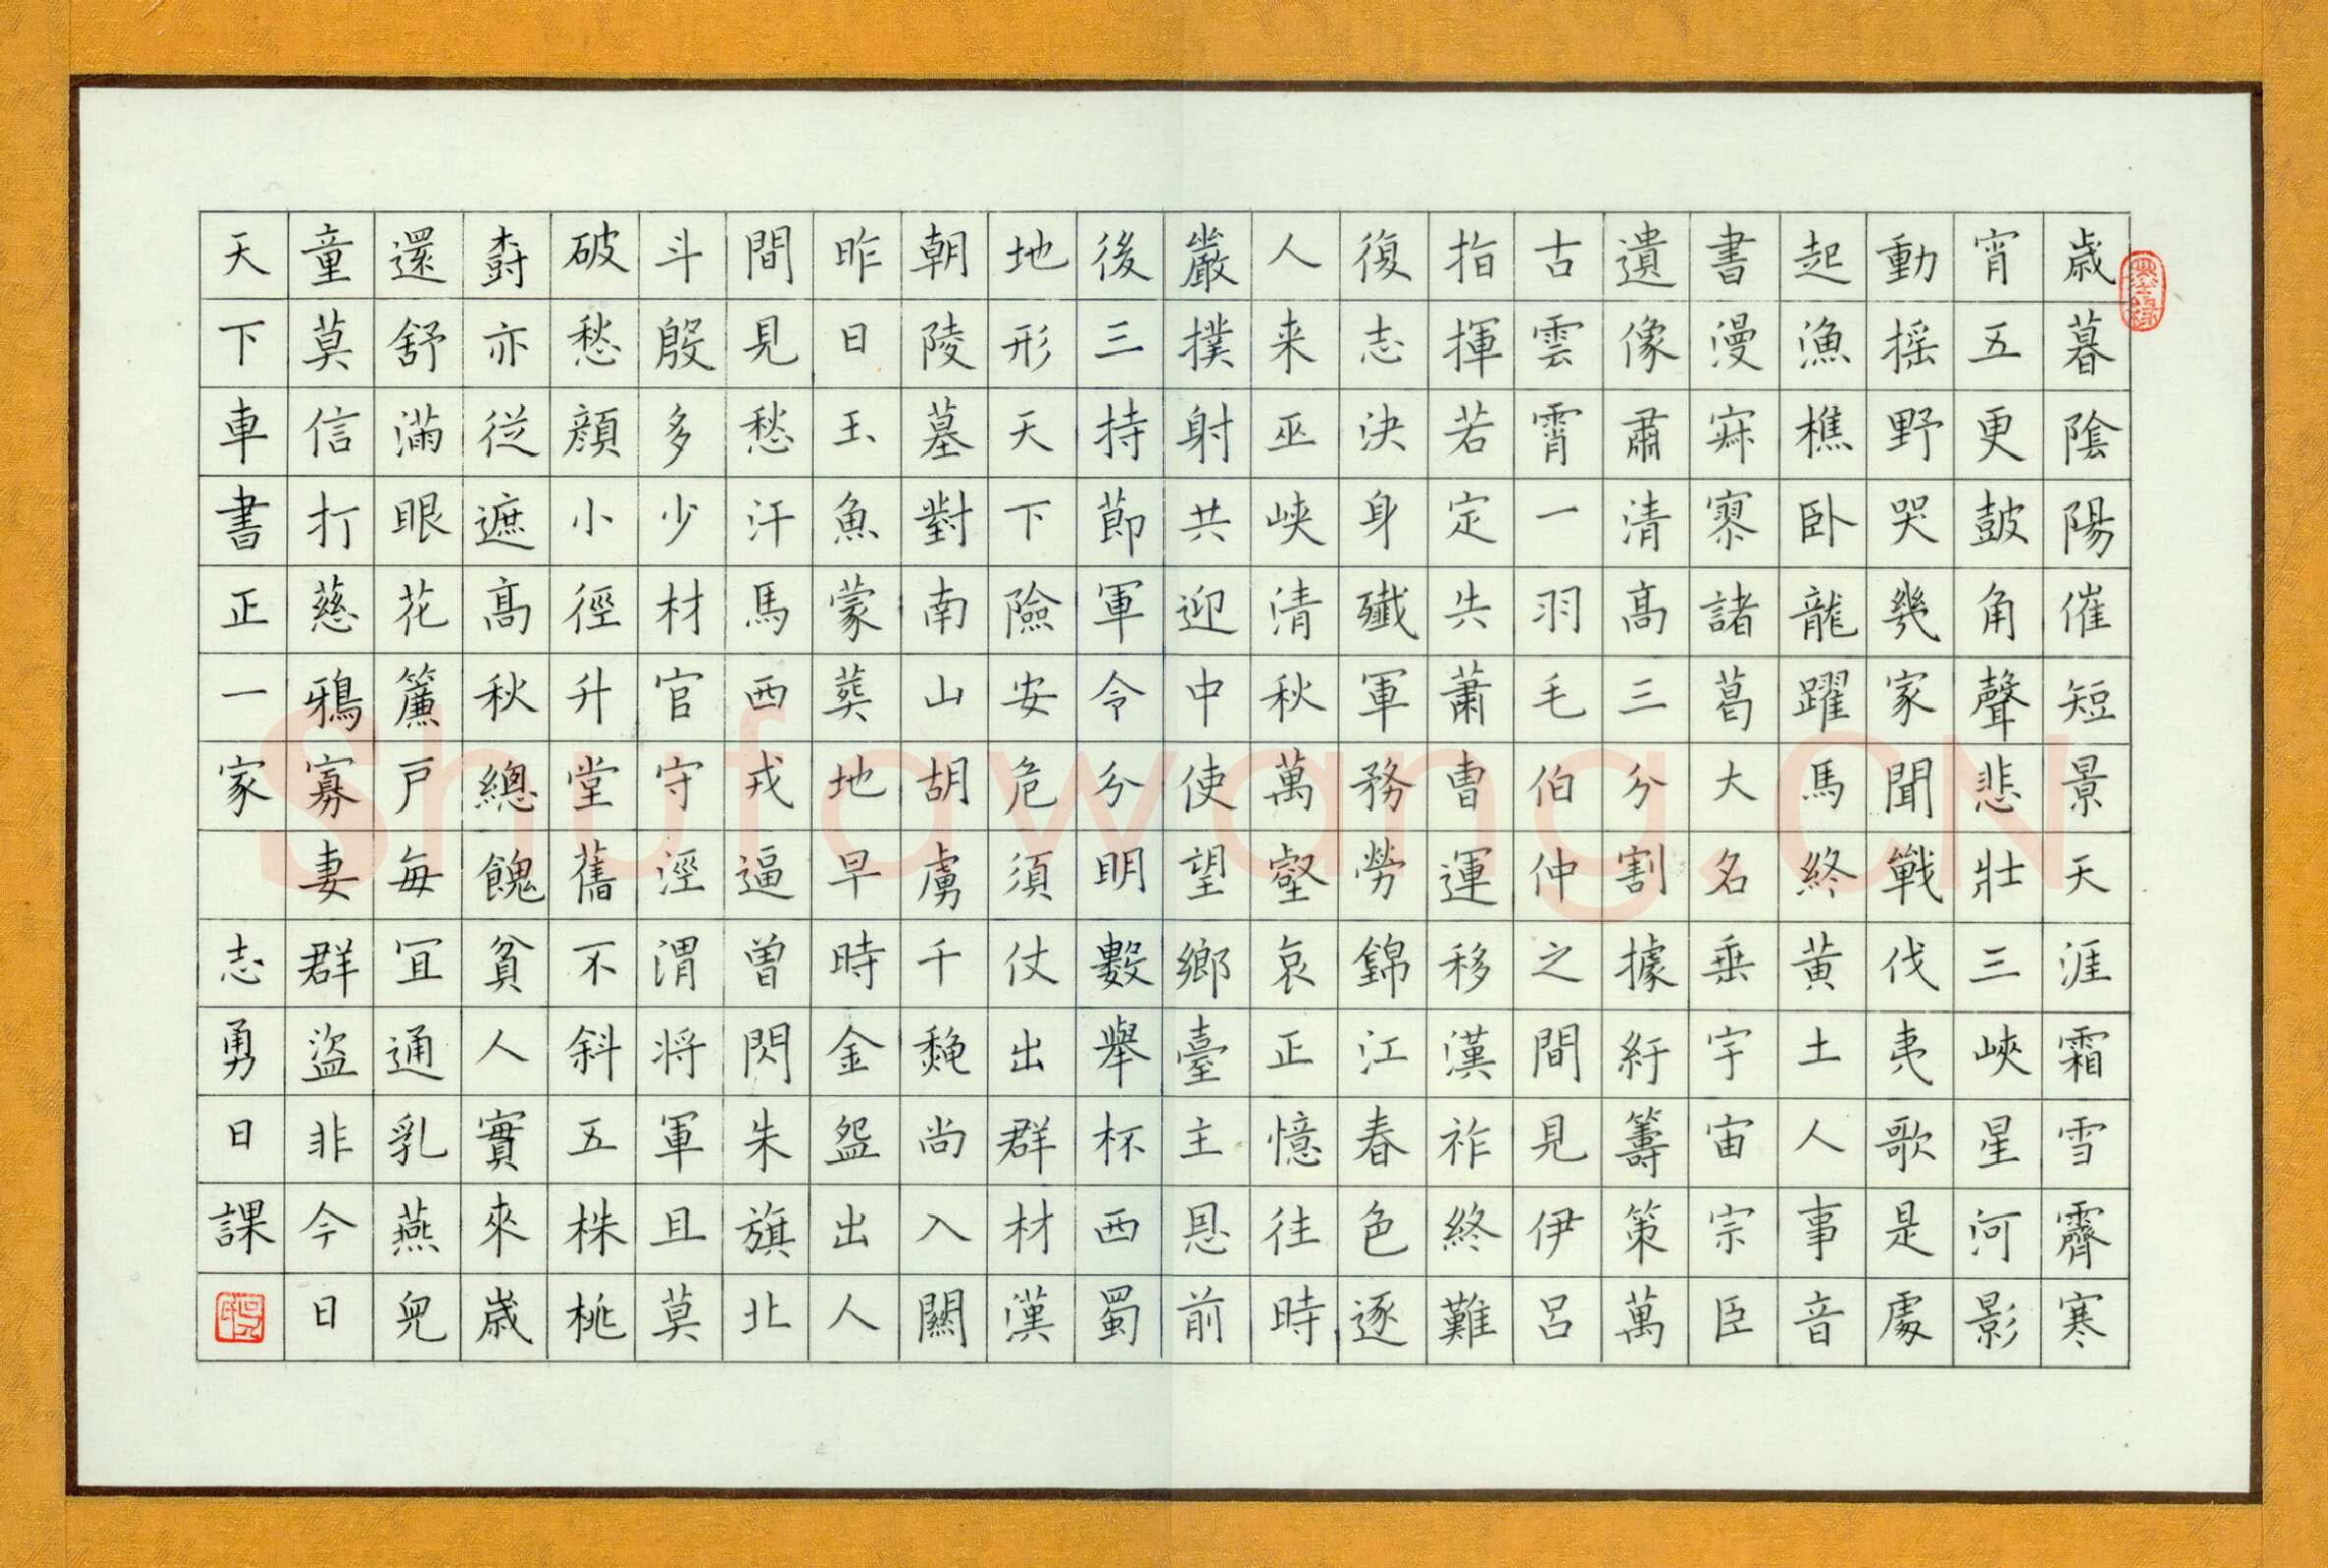 歲暮陰陽催短景天涯霜雪霽寒
宵五更鼓角聲悲壯三峽星河影
動搖野哭幾家聞戰伐夷歌是處
起漁樵卧龍躍馬終黃土人事音
書漫寂寥諸葛大名垂宇宙宗臣
遺像肅清高三分割據紆籌策萬
古雲霄一羽毛伯仲之間見伊呂
指揮若定失蕭曹運移漢祚終難
復志決身殲軍務勞錦江春色逐
人来巫峽清秋萬壑哀正憶往時
嚴撲射共迎中使望鄉臺主恩前
後三持節軍令分明數舉杯西蜀
地形天下險安危須仗出群材漢
朝陵墓對南山胡虜千穐尚入關
昨日玉魚蒙葬地早時金盌出人
間見愁汗馬西戎逼曾閃朱旗北
斗殷多少材官守涇渭将軍且莫
破愁顏小徑升堂舊不斜五株桃
樹亦從遮高秋總餽貧人實來歲
還舒滿眼花簾戶每宜通乳燕兒
童莫信打慈鴉寡妻群盜非今日
天下車書正一家 志勇日課
墨緣
Shufawang.CN